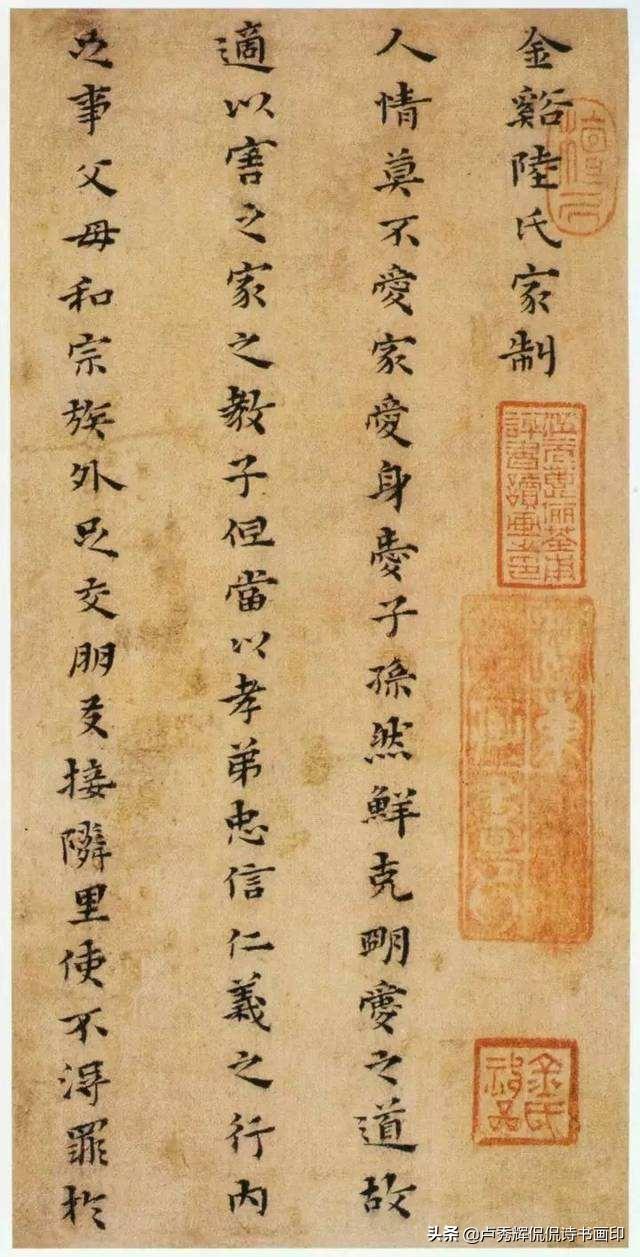 金谿陸氏家制
人情莫不愛家愛身愛子孫然鮮克明愛之道故
適以害之家之教子但當以孝弟忠信仁義之行内
足事父母和宗族外足交朋友接隣里使不得罪於
金氏
頭条 @卢秀辉侃侃诗书画印